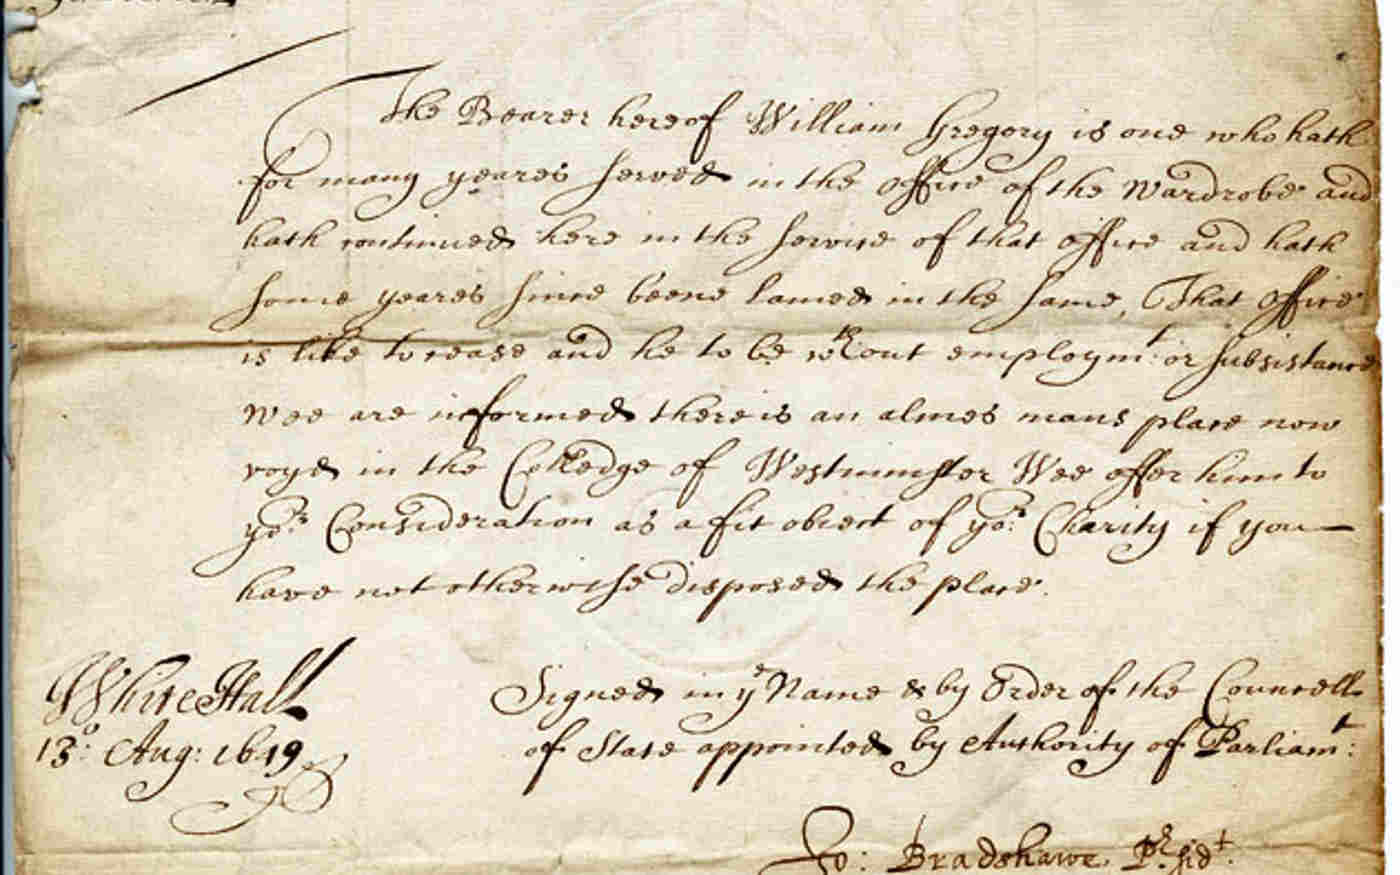 The Bearer hereof William Gregory is one who hath
for many yeares served in the office of the wardrobe and
hath continued here in the service of that office and hath
some yeares since beene lamed in the same, That office
is like to cease and he to be wth out employmt: or subsistance
Wee are informed there is an almes mans place now
voyd in the Colledge of Westminster Wee offer him to
yor: Consideration as a fit obiect of yor: Charity if you
have not otherwise disposed the place.
WhiteHall
13o: Aug: 1649
Signed in ye Name & by Order of the Councell
of State appointed by Authority of Parliamt:
Jo: Bradshawe. Pr. sidt.